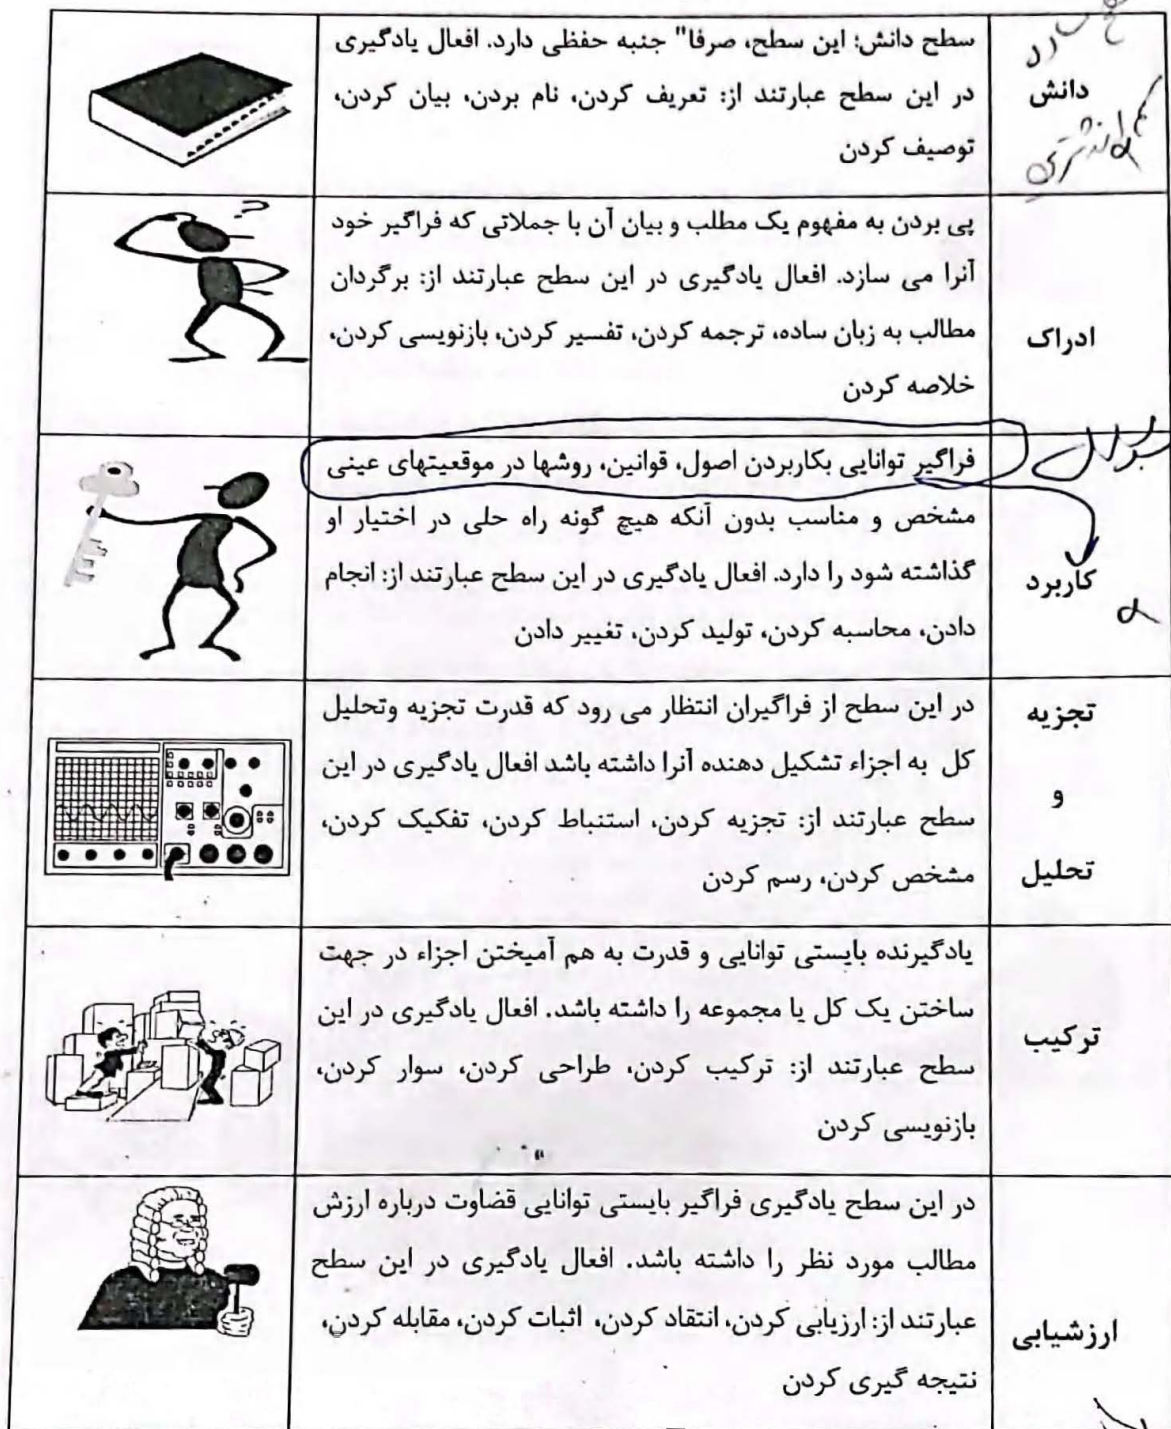 دانش
سطح دانش: این سطح، صرفا" جنبه حفظی دارد. افعال یادگیری
در این سطح عبارتند از: تعریف کردن، نام بردن، بیان کردن،
توصیف کردن
ادراک
پی بردن به مفهوم یک مطلب و بیان آن با جملاتی که فراگیر خود
آنرا می سازد. افعال یادگیری در این سطح عبارتند از: برگردان
مطالب به زبان ساده، ترجمه کردن، تفسیر کردن، بازنویسی کردن،
خلاصه کردن
کاربرد
فراگیر توانایی بکاربردن اصول، قوانین، روشها در موقعیتهای عینی
مشخص و مناسب بدون آنکه هیچ گونه راه حلی در اختیار او
گذاشته شود را دارد. افعال یادگیری در این سطح عبارتند از: انجام
دادن، محاسبه کردن، تولید کردن، تغییر دادن
تجزیه
و
تحلیل
در این سطح از فراگیران انتظار می رود که قدرت تجزیه وتحلیل
کل به اجزاء تشکیل دهنده آنرا داشته باشد افعال یادگیری در این
سطح عبارتند از: تجزیه کردن، استنباط کردن، تفکیک کردن،
مشخص کردن، رسم کردن
ترکیب
یادگیرنده بایستی توانایی و قدرت به هم آمیختن اجزاء در جهت
ساختن یک کل یا مجموعه را داشته باشد. افعال یادگیری در این
سطح عبارتند از: ترکیب کردن، طراحی کردن، سوار کردن،
بازنویسی کردن
ارزشیابی
در این سطح یادگیری فراگیر بایستی توانایی قضاوت درباره ارزش
مطالب مورد نظر را داشته باشد. افعال یادگیری در این سطح
عبارتند از: ارزیابی کردن، انتقاد کردن، اثبات کردن، مقابله کردن،
نتیجه گیری کردن